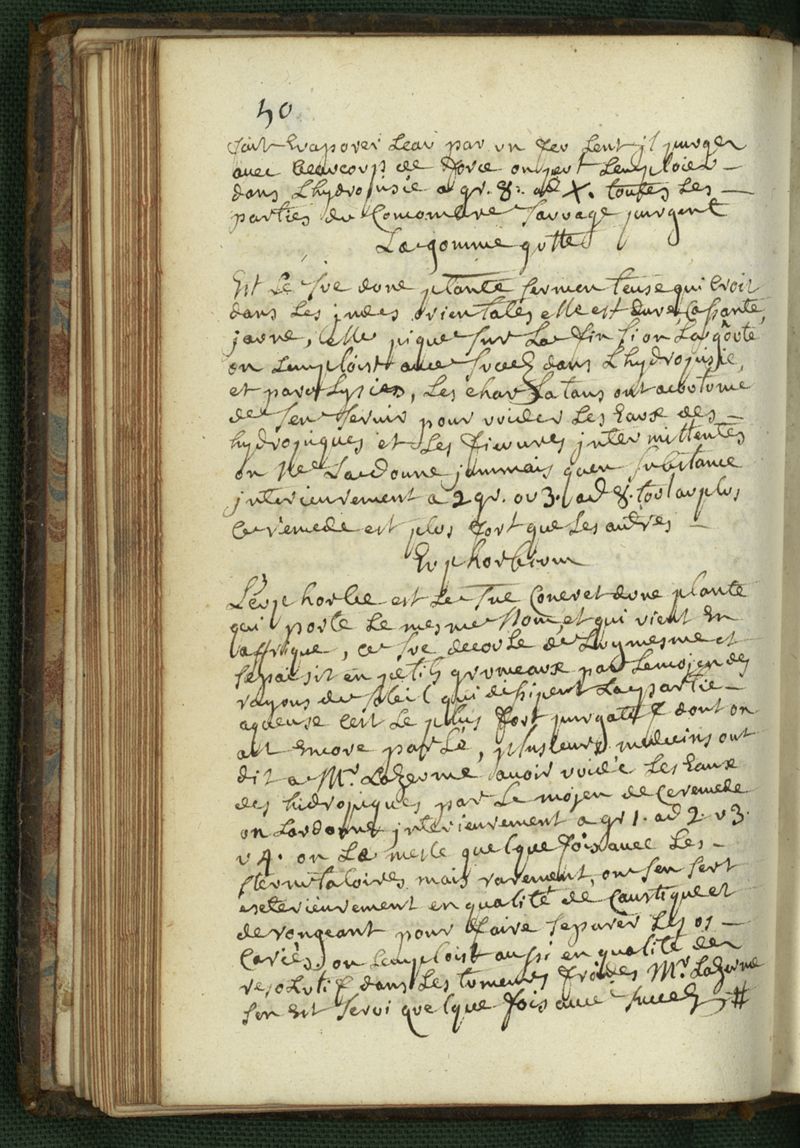 50
fait Evaporer Leau par un feu Lent il purge
avec beaucoup de force on peut Lemploier
dans Lhydropisie a gr. 8. ad X. toutes Les
parties du Concombre Sauvage purgent
La gomme gutte
Est Le Suc dune plante Sermenteuse qui Croit
dans Les jndes orientales elle est dure Cassante,
jaune, elle pique Sur La fin Si on La goute
on Lemploist avec Succez dans Lhydropisie,
et paralysies, Les charLatans ont acoutume
de Sen Servir pour vuider Les Eaux des
hydropiques et Les fievres jntermittentes
on Ne La donne jammais quen Substance
jnterieurement a 2 gr. ou 3. ad 8. tout au plus
Ce remede est plus fort que Les autres
Euphorbium
Leuphorbe est Le Suc Concret dune plante
qui porte Le mesme Nom, et qui vient En
affrique, Ce Suc decoule de Luy mesme et
Sepaisit en petits grumeaux par Le mojen des
rayons du Soleil qui disipent La partie
aqueuse Cest Le plus fort purgatif dont on
ait Encore parLé, plusieurs medecins ont
dit a Mr. Lazerme avoir vuidé Les Eaux
des hidropiques par Le mojen de Ce remede
on La donne jnterieurement a gr 1. ad 2. u 3.
u 4. on La mesle quelque fois avec Les
Sternutatoires mais rarement, on Sen Sert
exterieurement en qualité de Caustique et
de rongeant pour faire Separer Les os
Cariés. on Lemploist aussi en qualité de
resolutif dans Les tumeurs froides Mr. Lazerme
Sen Est Servi quelque fois avec Succez #